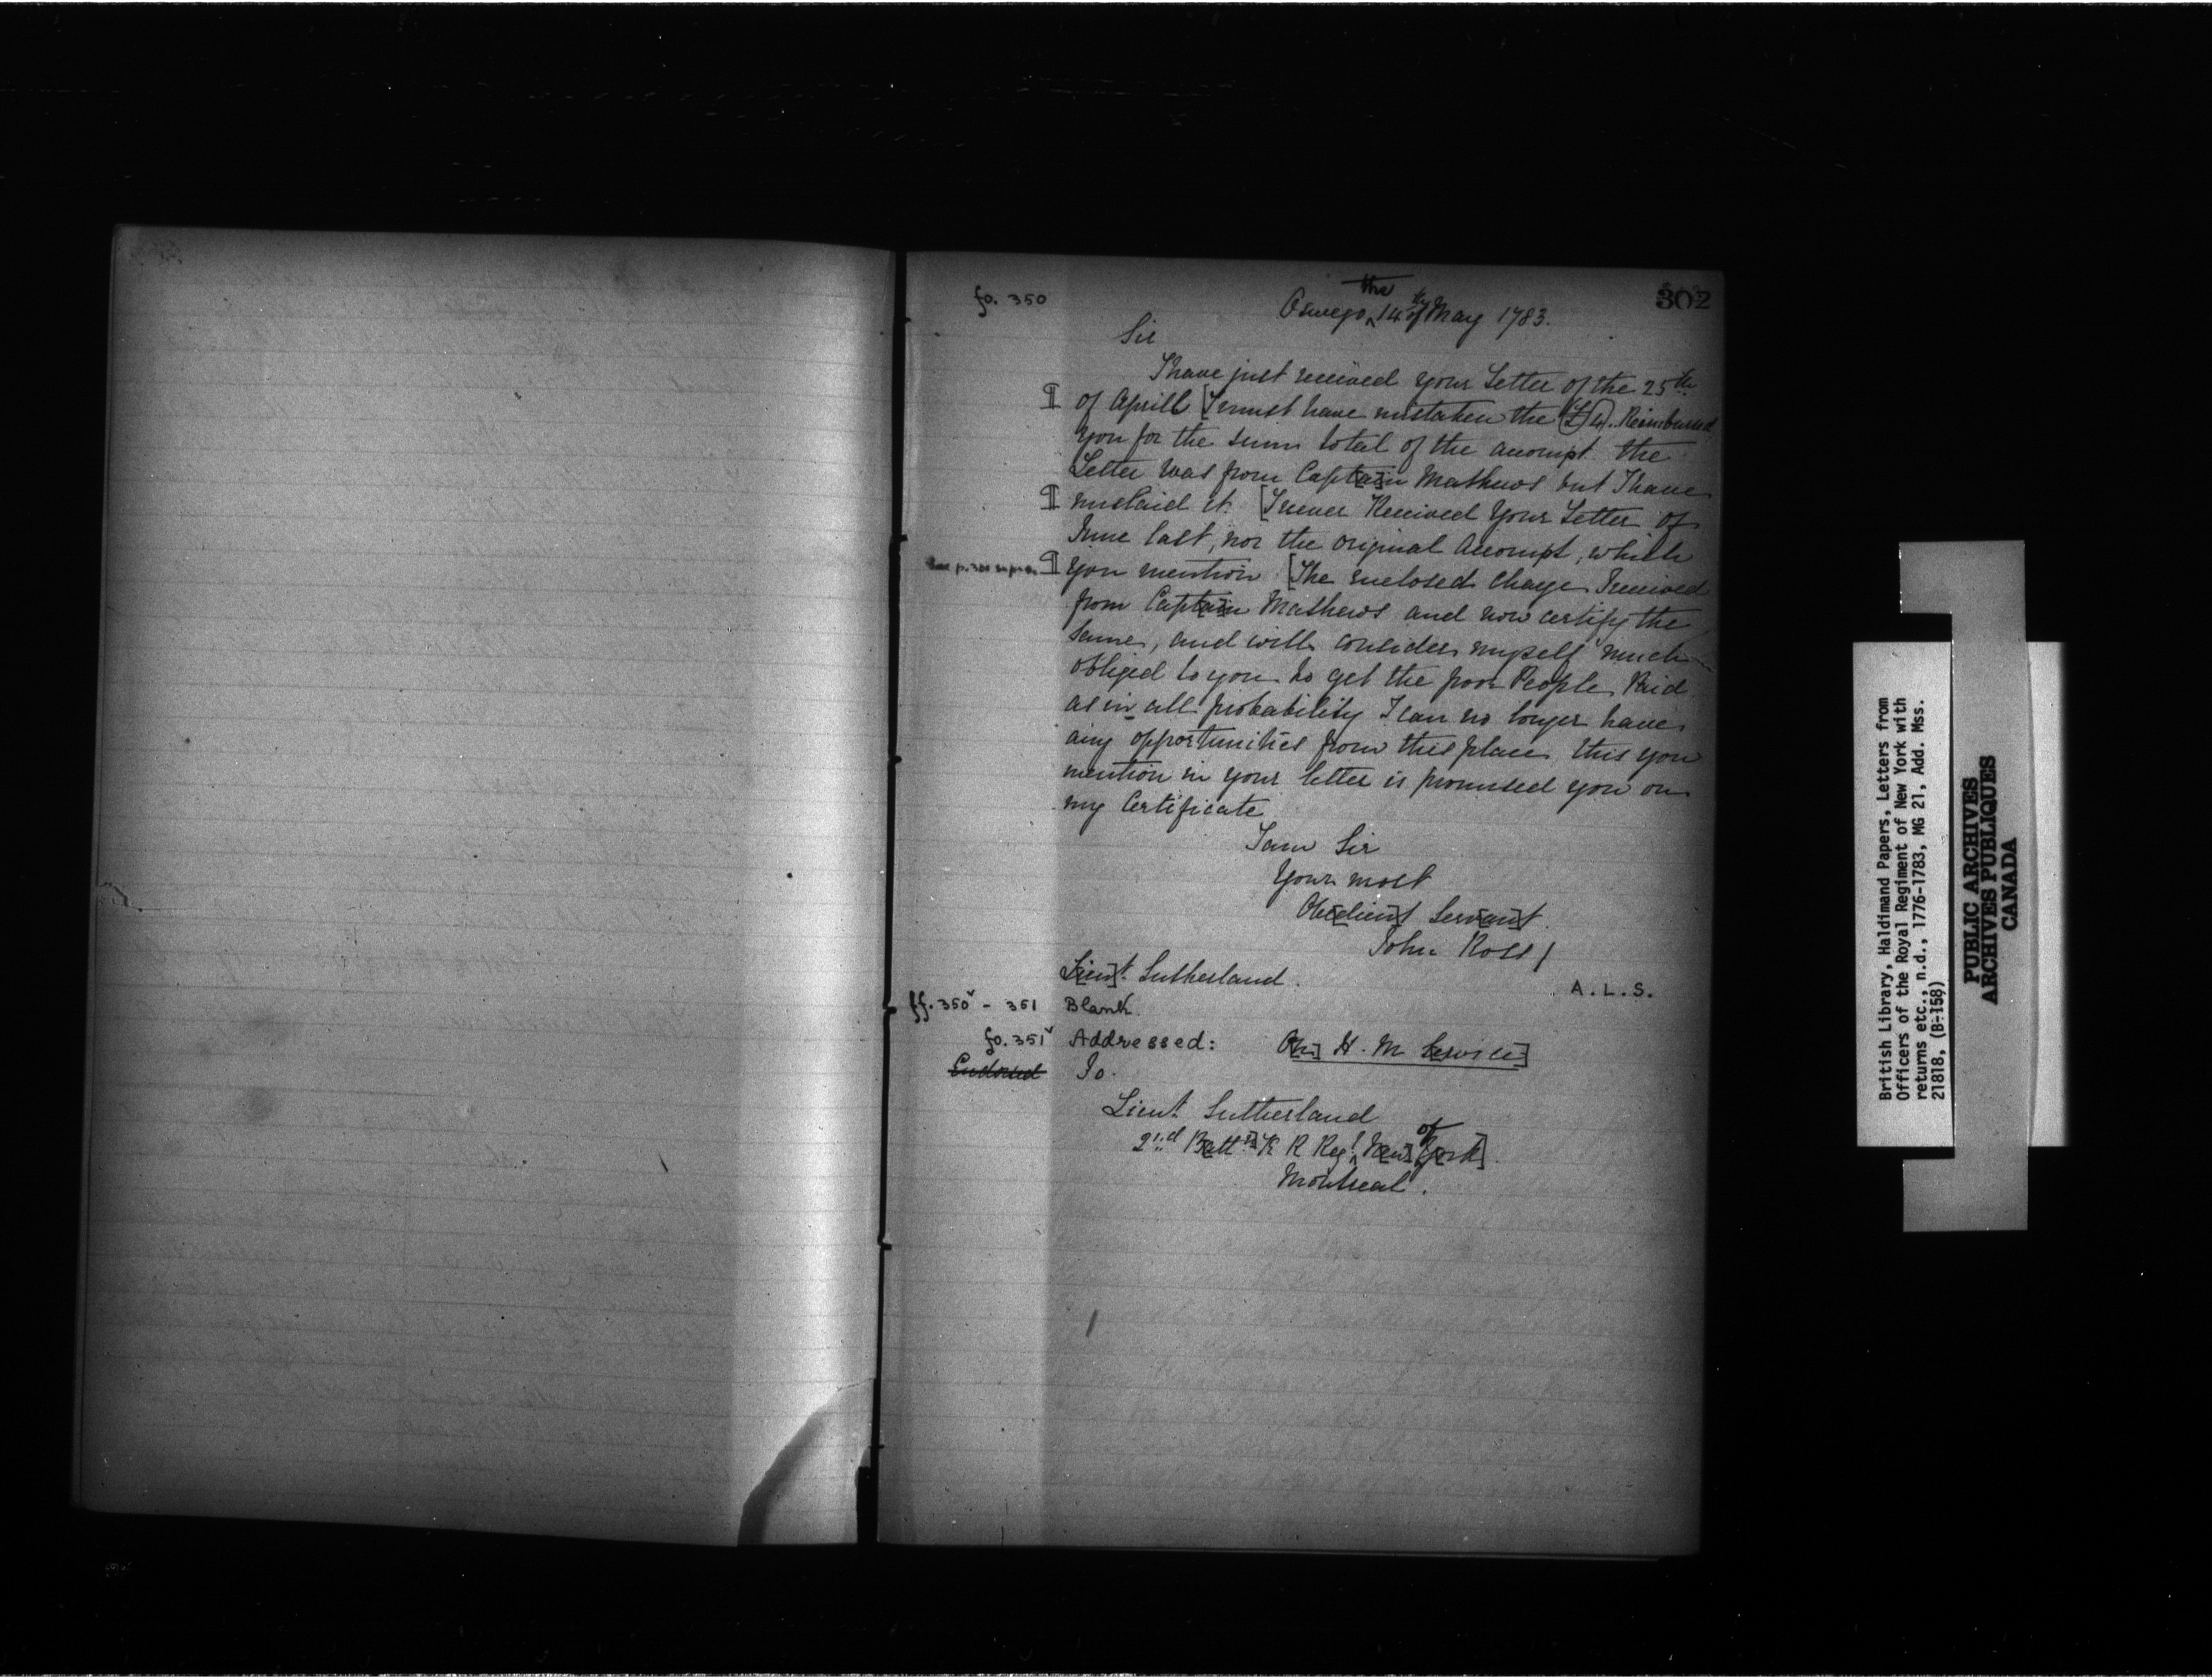 fo. 350
302
the
Oswego 14th of May 1783.
Sir
I have just received your Letter of the 25th
¶ of Aprill [I must have mistaken the (£)4). Reimbursed
you for the sum total of the accompt the
Letter was from Capt[ai]n Mathews but I have
¶ mislaid it. [I never Received Your Letter of
June last, nor the original Accompt, which
¶ you mention [The enclosed charge I received
from Capt[ai]n Mathews and now certify the
same, and will consider myself much
obliged to you to get the poor People Paid
as in all probability I can no longer have
any opportunities from this place this you
mention in your letter is promised you on
my Certificate
I am Sir
Your most
Obe[dien]t Serv[an]t
John Ross /
L[ieu]t. Sutherland.
A.L.S.
ff. 350v - 351 Blank.
fo. 351v Addressed: O[n] H. M. Servi[ce]
Endorsed To.
Lieut. Sutherland
of
2nd B[att]n K R Regt N[ew] Y[ork].
Montreal.
British Library, Haldimand Papers, Letters from
Officers of the Royal Regiment of New York with
returns etc., n.d., 1776-1783, MG 21, Add. Mss.
21818, (B-158)
PUBLIC ARCHIVES
ARCHIVES PUBLIQUES
CANADA